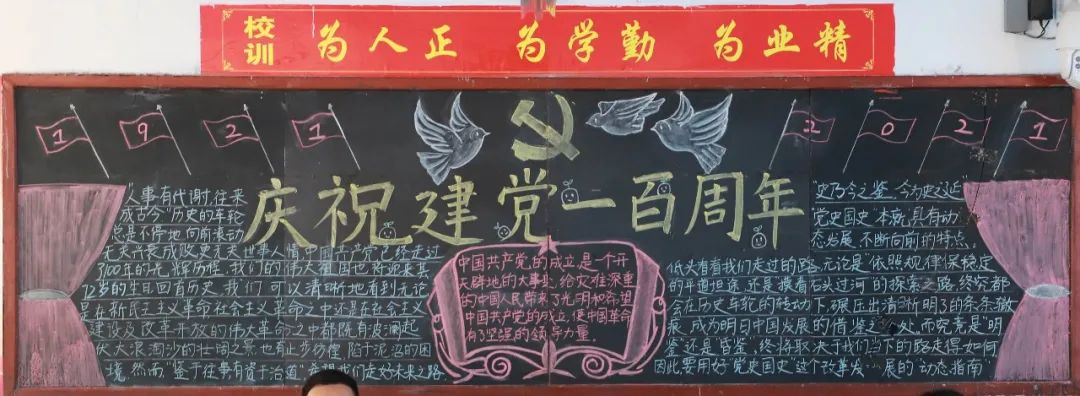 校训
为人正 为学勤 为业精
1921
2021
庆祝建党一百周年
"人事有代谢,往来
成古今"历史的车轮
总是不停地向前滚动
无关兴衰成败更无关世事人情中国共产党已经走过
了100年的光辉历程,我们的伟大祖国也将迎来其
72岁的生日回首历史,我们可以清晰地看到无论
是在新民主主义革命社会主义革命之中还是在社会主义
建设及改革开放的伟大革命之中都既有波澜起
伏,大浪淘沙的壮阔之景也有止步彷徨,陷于泥沼的困
境,然而"鉴于往事有资于治道"
走好未来之路
中国共产党的成立是一个开
天辟地的大事业,给灾难深重
的中国人民带来了光明和希望
中国共产党的成立,使中国革命
有了坚强的领导力量。
"史乃今之鉴,今为史之延"
党史国史本就具有动
态发展,不断向前的特点,
低头看看我们走过的路,无论是"依照规律保稳定
的平道坦途还是摸着石头过河的探索之路,终究都
会在历史车轮的转动下碾压出清晰明了的条条辙
痕,成为明日中国发展的借鉴之处,而究竟是"明
鉴"还是"昏鉴",终将取决于我们当下的路走得如何
因此要用好党史国史这个改革发展的动态指南